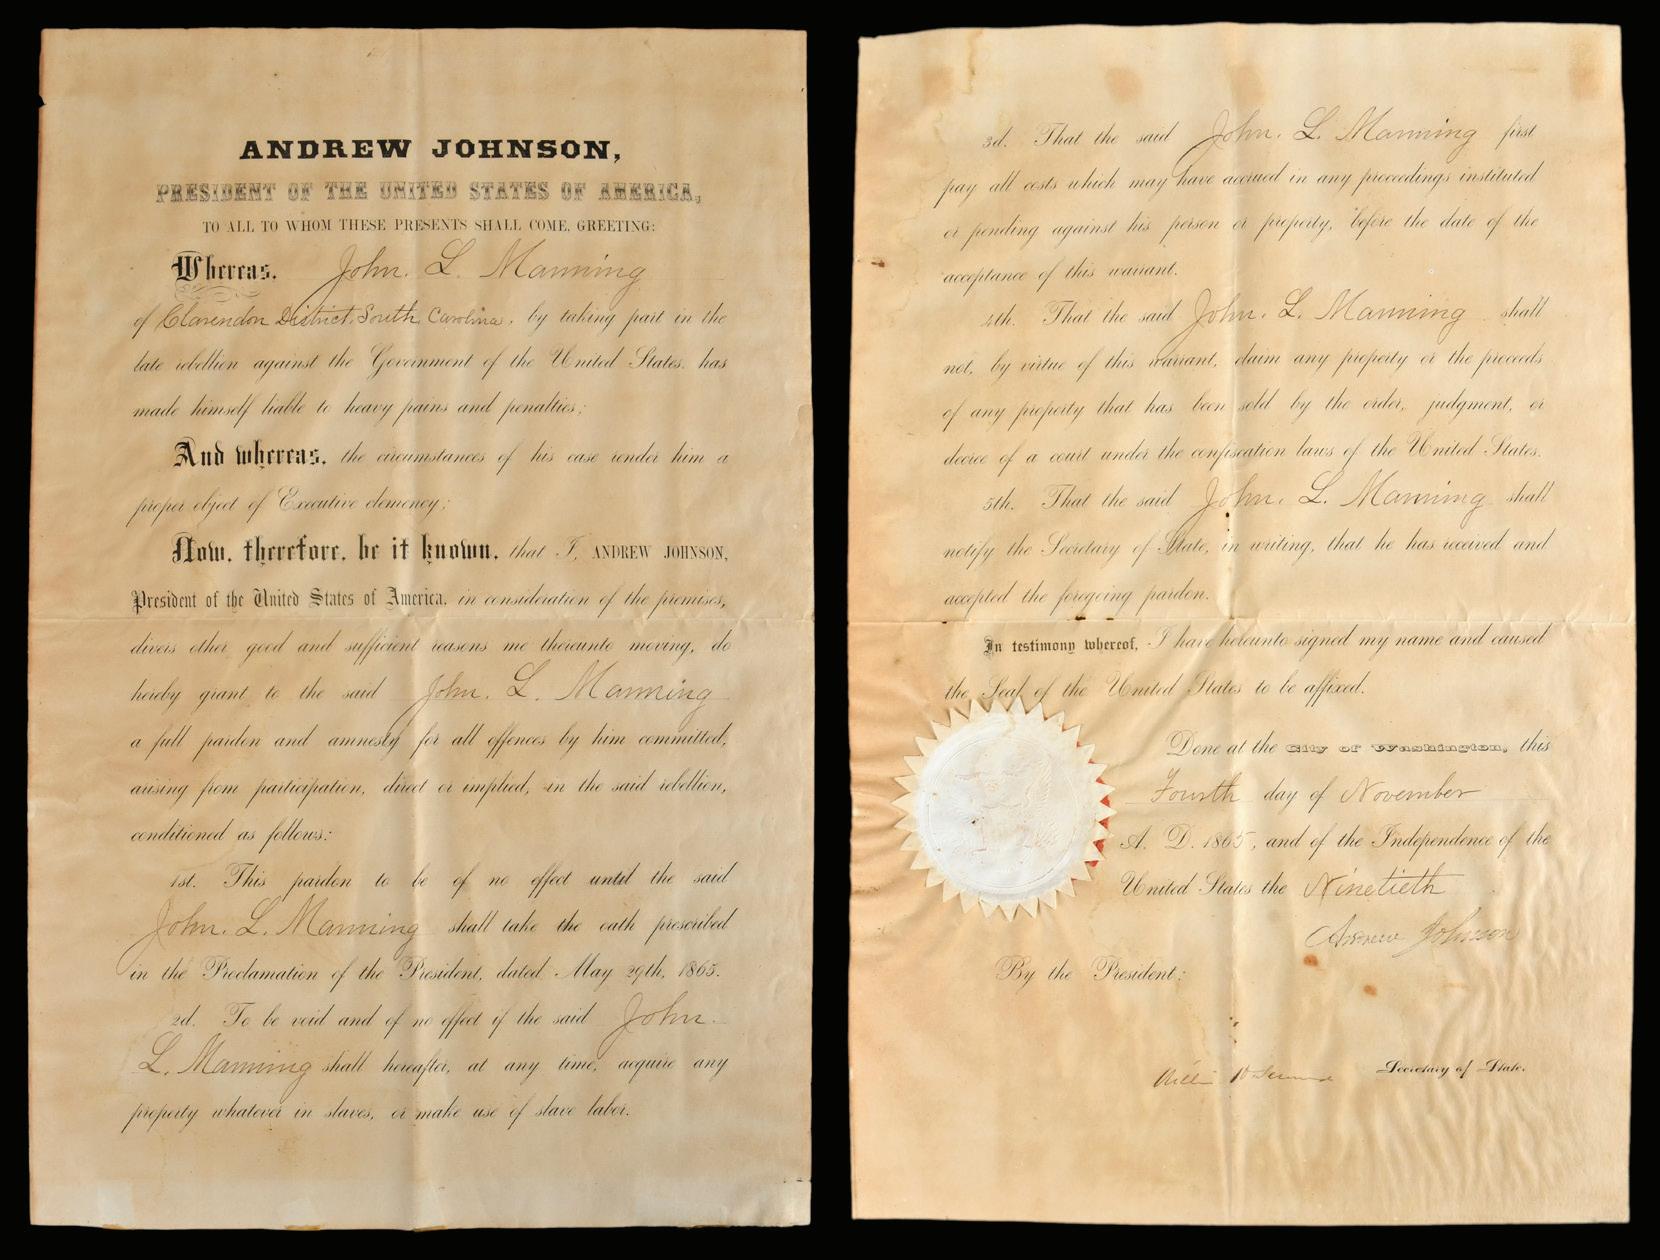 ANDREW JOHNSON,
PRESIDENT OF THE UNITED STATES OF AMERICA,
TO ALL TO WHOM THESE PRESENTS SHALL COME, GREETING:
Whereas, John. L. Manning
of Clarendon District, South Carolina, by taking part in the
late rebellion against the Government of the United States, has
made himself liable to heavy pains and penalties;
And whereas, the circumstances of his case render him a
proper object of Executive clemency;
Now, therefore, be it known, that I, ANDREW JOHNSON,
President of the United States of America, in consideration of the premises,
divers other good and sufficient reasons me thereunto moving, do
hereby grant to the said John. L. Manning
a full pardon and amnesty for all offences by him committed,
arising from participation, direct or implied, in the said rebellion,
conditioned as follows:
1st. This pardon to be of no effect until the said
John. L. Manning shall take the oath prescribed
in the Proclamation of the President, dated May 29th, 1865.
2d. To be void and of no effect if the said John.
L. Manning shall hereafter, at any time, acquire any
property whatever in slaves, or make use of slave labor.
3d. That the said John. L. Manning first
pay all costs which may have accrued in any proceedings instituted
or pending against his person or property, before the date of the
acceptance of this warrant.
4th. That the said John. L. Manning shall
not, by virtue of this warrant, claim any property or the proceeds
of any property that has been sold by the order, judgment, or
decree of a court under the confiscation laws of the United States.
5th. That the said John. L. Manning shall
notify the Secretary of State, in writing, that he has received and
accepted the foregoing pardon.
In testimony whereof, I have hereunto signed my name and caused
the Seal of the United States to be affixed.
Done at the City of Washington, this
Fourth day of November
A. D. 1865, and of the Independence of the
United States the Ninetieth
Andrew Johnson
By the President:
William H Seward Secretary of State.